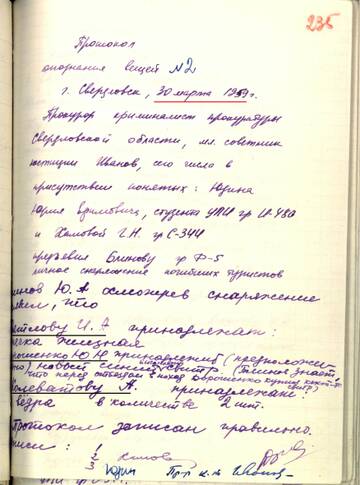 235
Протокол
опознания вещей №2
г. Свердловск, 30 марта 1959г.
Прокурор криминалист прокуратуры
Свердловской области, мл. советник
юстиции Иванов, сего числа в
присутствии понятых: Юдина
Юрия Ефимовича, студента УПИ гр И-480
и Хамовой Г.Н. гр С-344
предъявил Блинову гр Ф-5
личное снаряжение погибших туристов
инов Ю.А осмотрев снаряжение
что
И.А принадлежат:
Ю.Н принадлежит (предположи-
но) новый синий свитр.
что перед отходом в поход Дорошенко купил
леватову А. принадлежат:
ведра в количестве 2 шт.
ротокол записан правильно.
писи: 1
2
3 Юдин Пр-р к-м Иванов